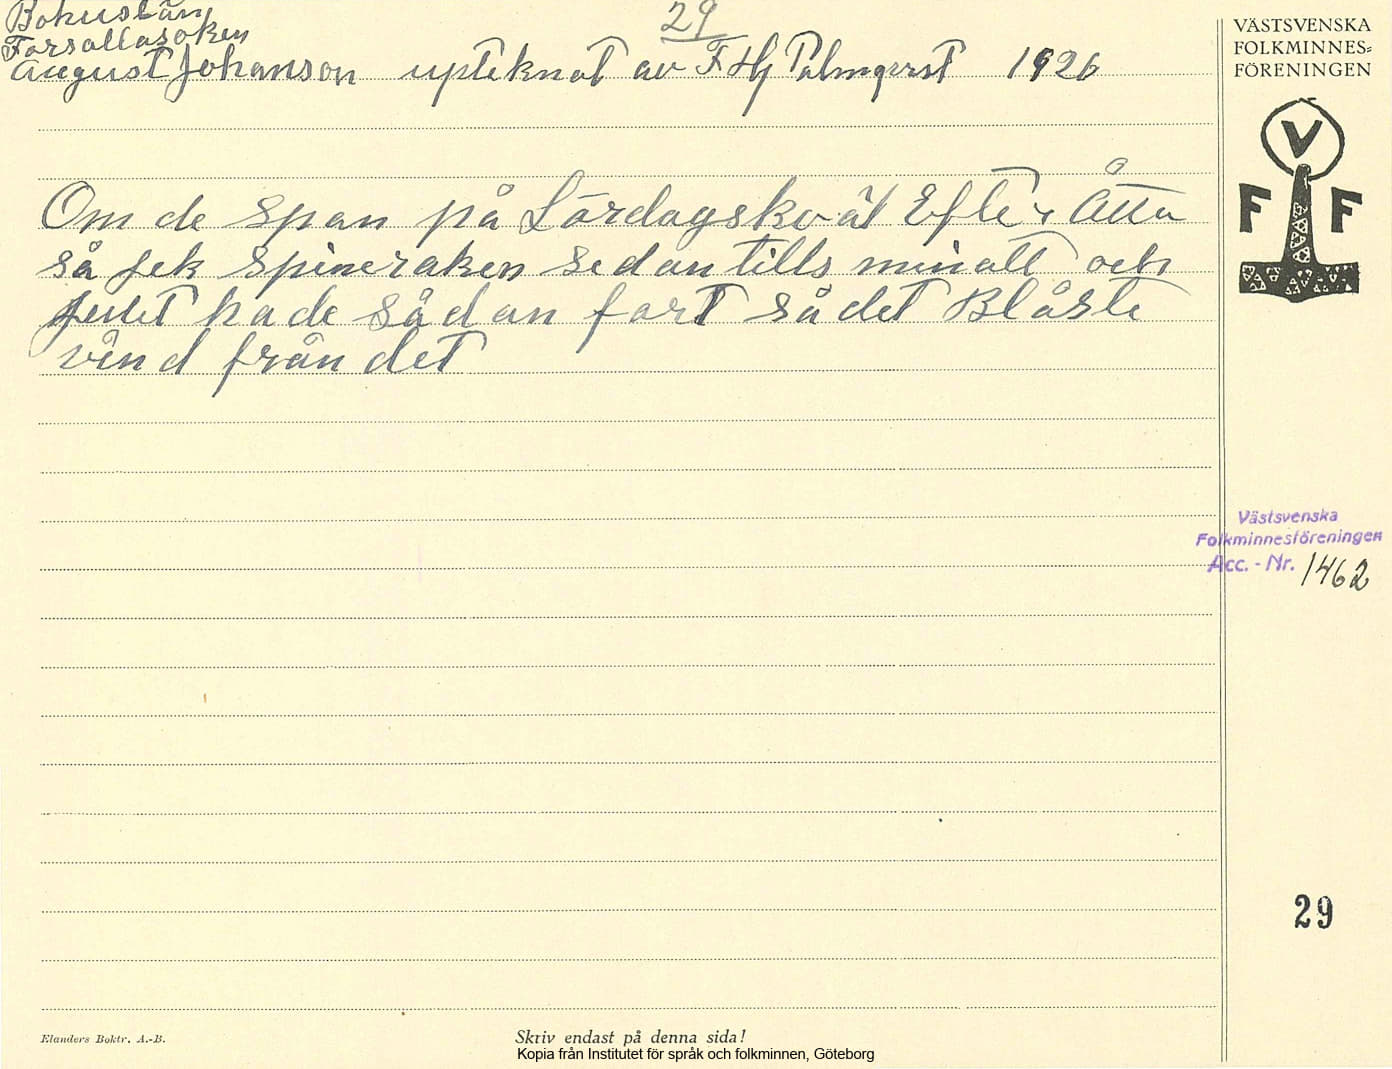 Bohuslän
29
Forsallasoken
August Johanson upteknat av F Hj Palmqvist 1926
Om de span på Lördagskväl Efter Åtta
så fek spineraken sedan tills minatt och
hade sådan fart så det Blåste
vind från det
VÄSTSVENSKA
FOLKMINNES-
FÖRENINGEN
V
F F
Västsvenska
Folkminnesföreningen
Acc.-Nr. 1462
29
Elanders Boktr. A.-B.
Skriv endast på denna sida!
Kopia från Institutet för språk och folkminnen, Göteborg